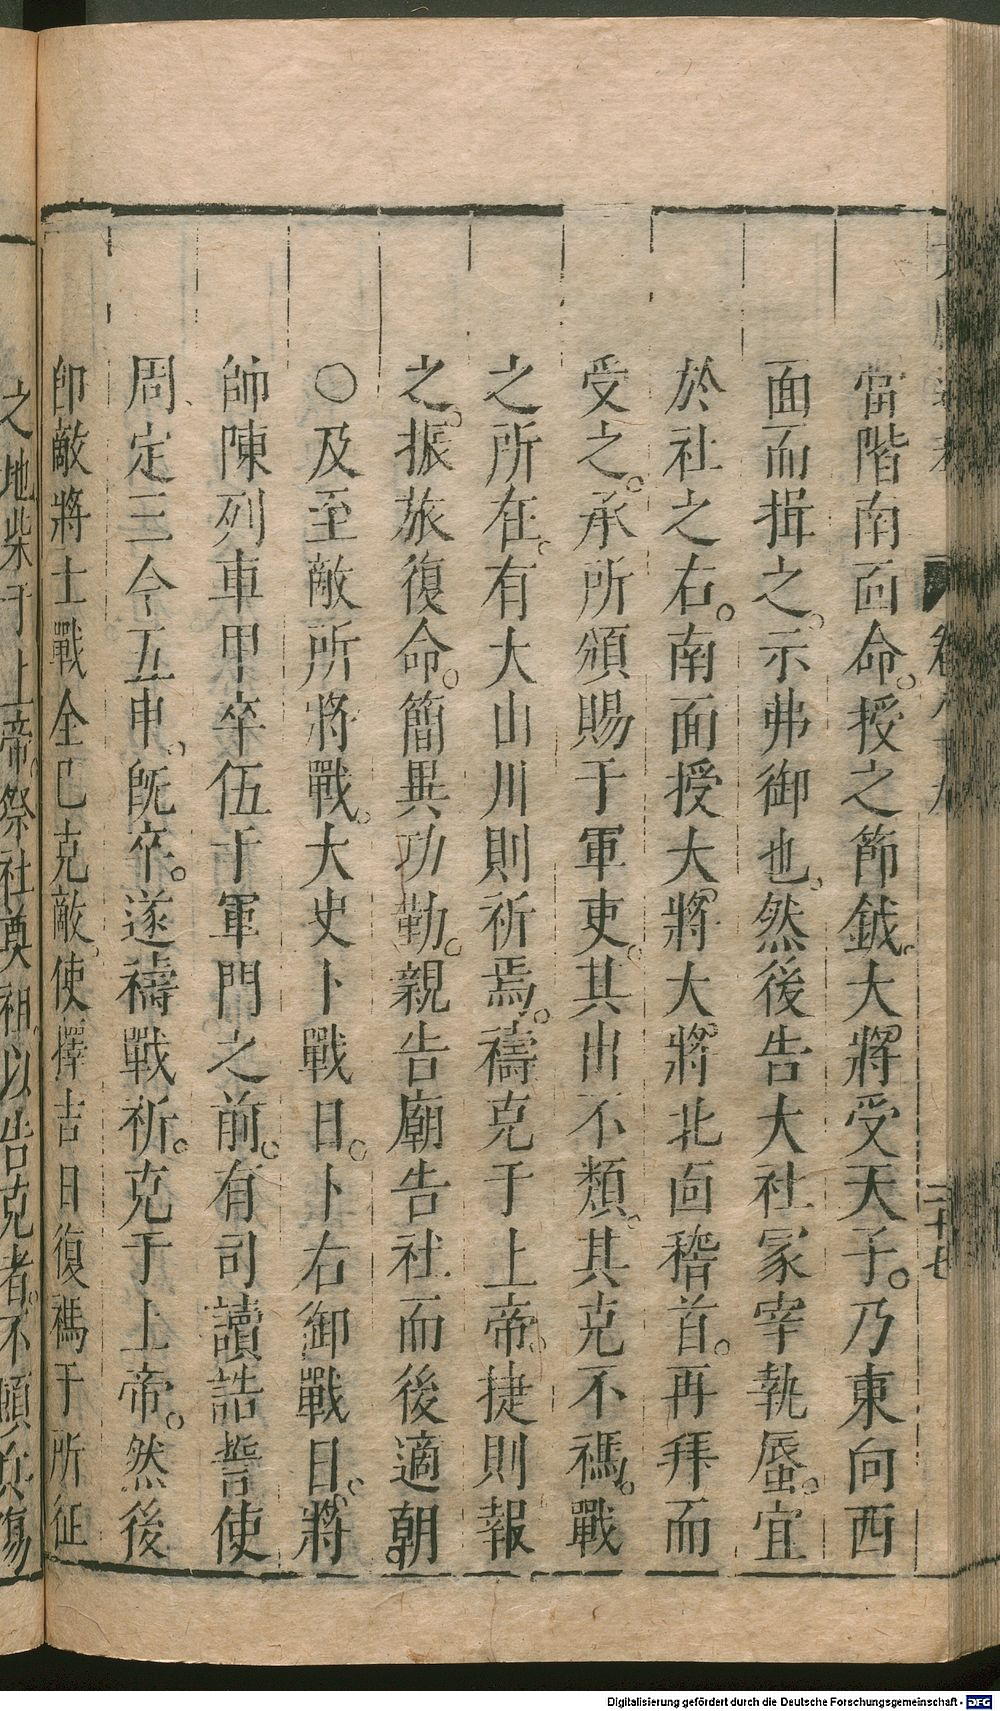 當階南面命。授之節鉞。大將受天子。乃東向西
面而揖之。示弗御也。然後告大社冢宰執蜃。宜
於社之右。南面授大將大將北面稽首。再拜而
受之。承所頒賜于軍吏。其出不類。其克不禡。戰
之所在。有大山川則祈焉。禱克于上帝。捷則報
之。振旅復命。簡異功勤。親告廟告社而後適朝。
○及至敵所將戰。大史卜戰日。卜右御戰日。將
帥陳列車甲卒伍于軍門之前。有司讀誥誓使
周定三令五申。旣卒。遂禱戰祈。克于上帝。然後
卽敵將士戰全已克敵。使擇吉日復禡于所征
之地柴于上帝。祭社奠祖。以告克者。不頓兵傷
Digitalisierung gefördert durch die Deutsche Forschungsgemeinschaft - DFG